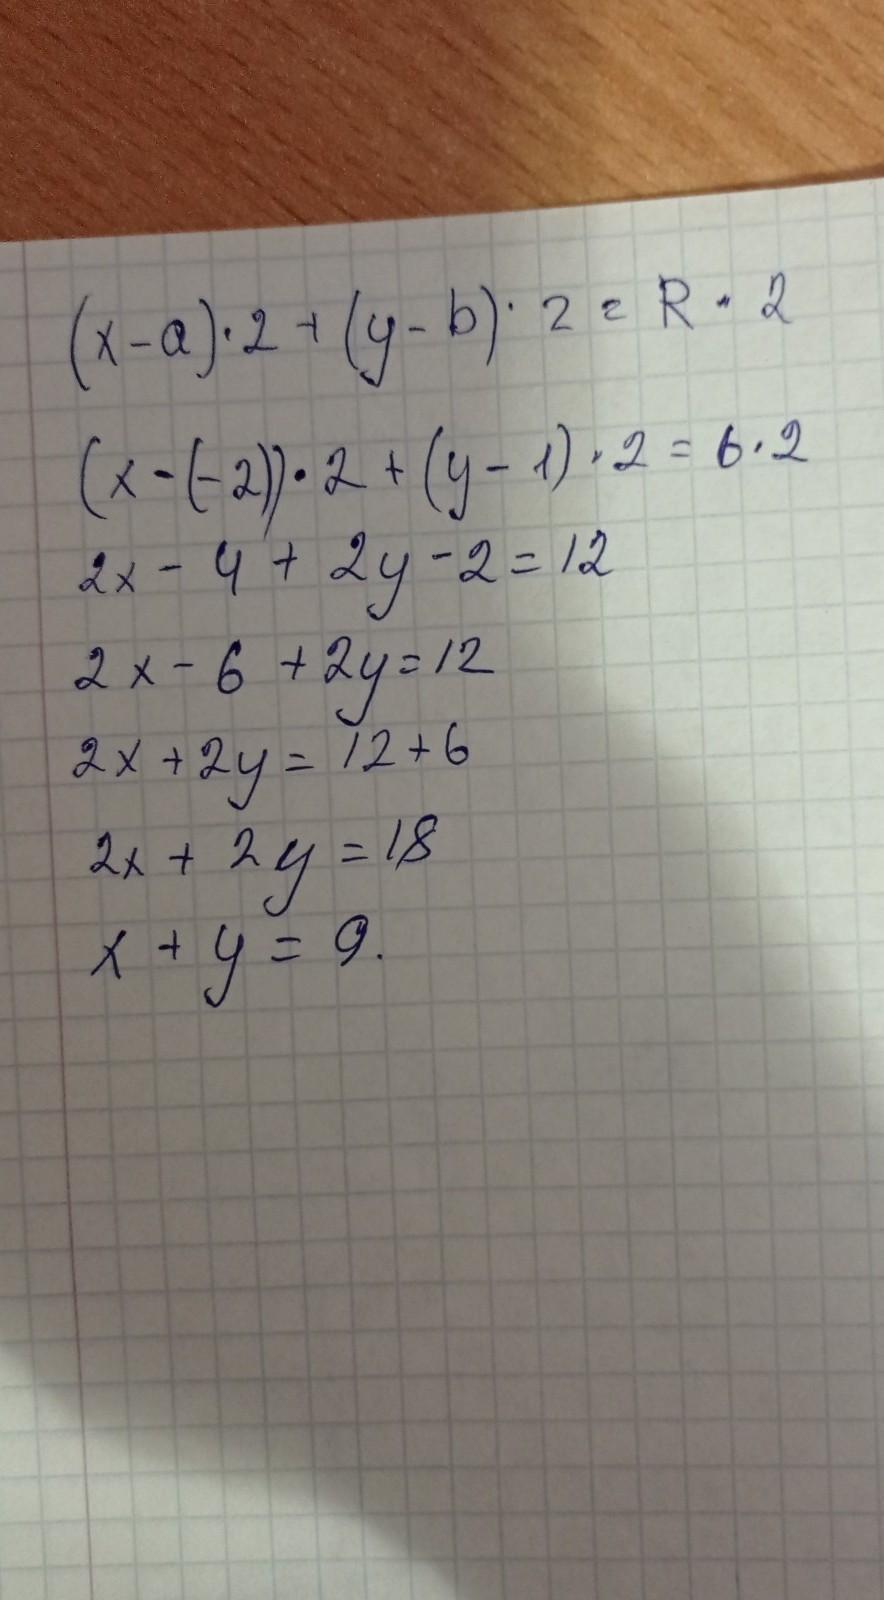 (x-a)·2+(y-b)·2=R·2
(x-(-2))·2+(y-1)·2=6·2
2x-4+2y-2=12
2x-6+2y=12
2x+2y=12+6
2x+2y=18
x+y=9.